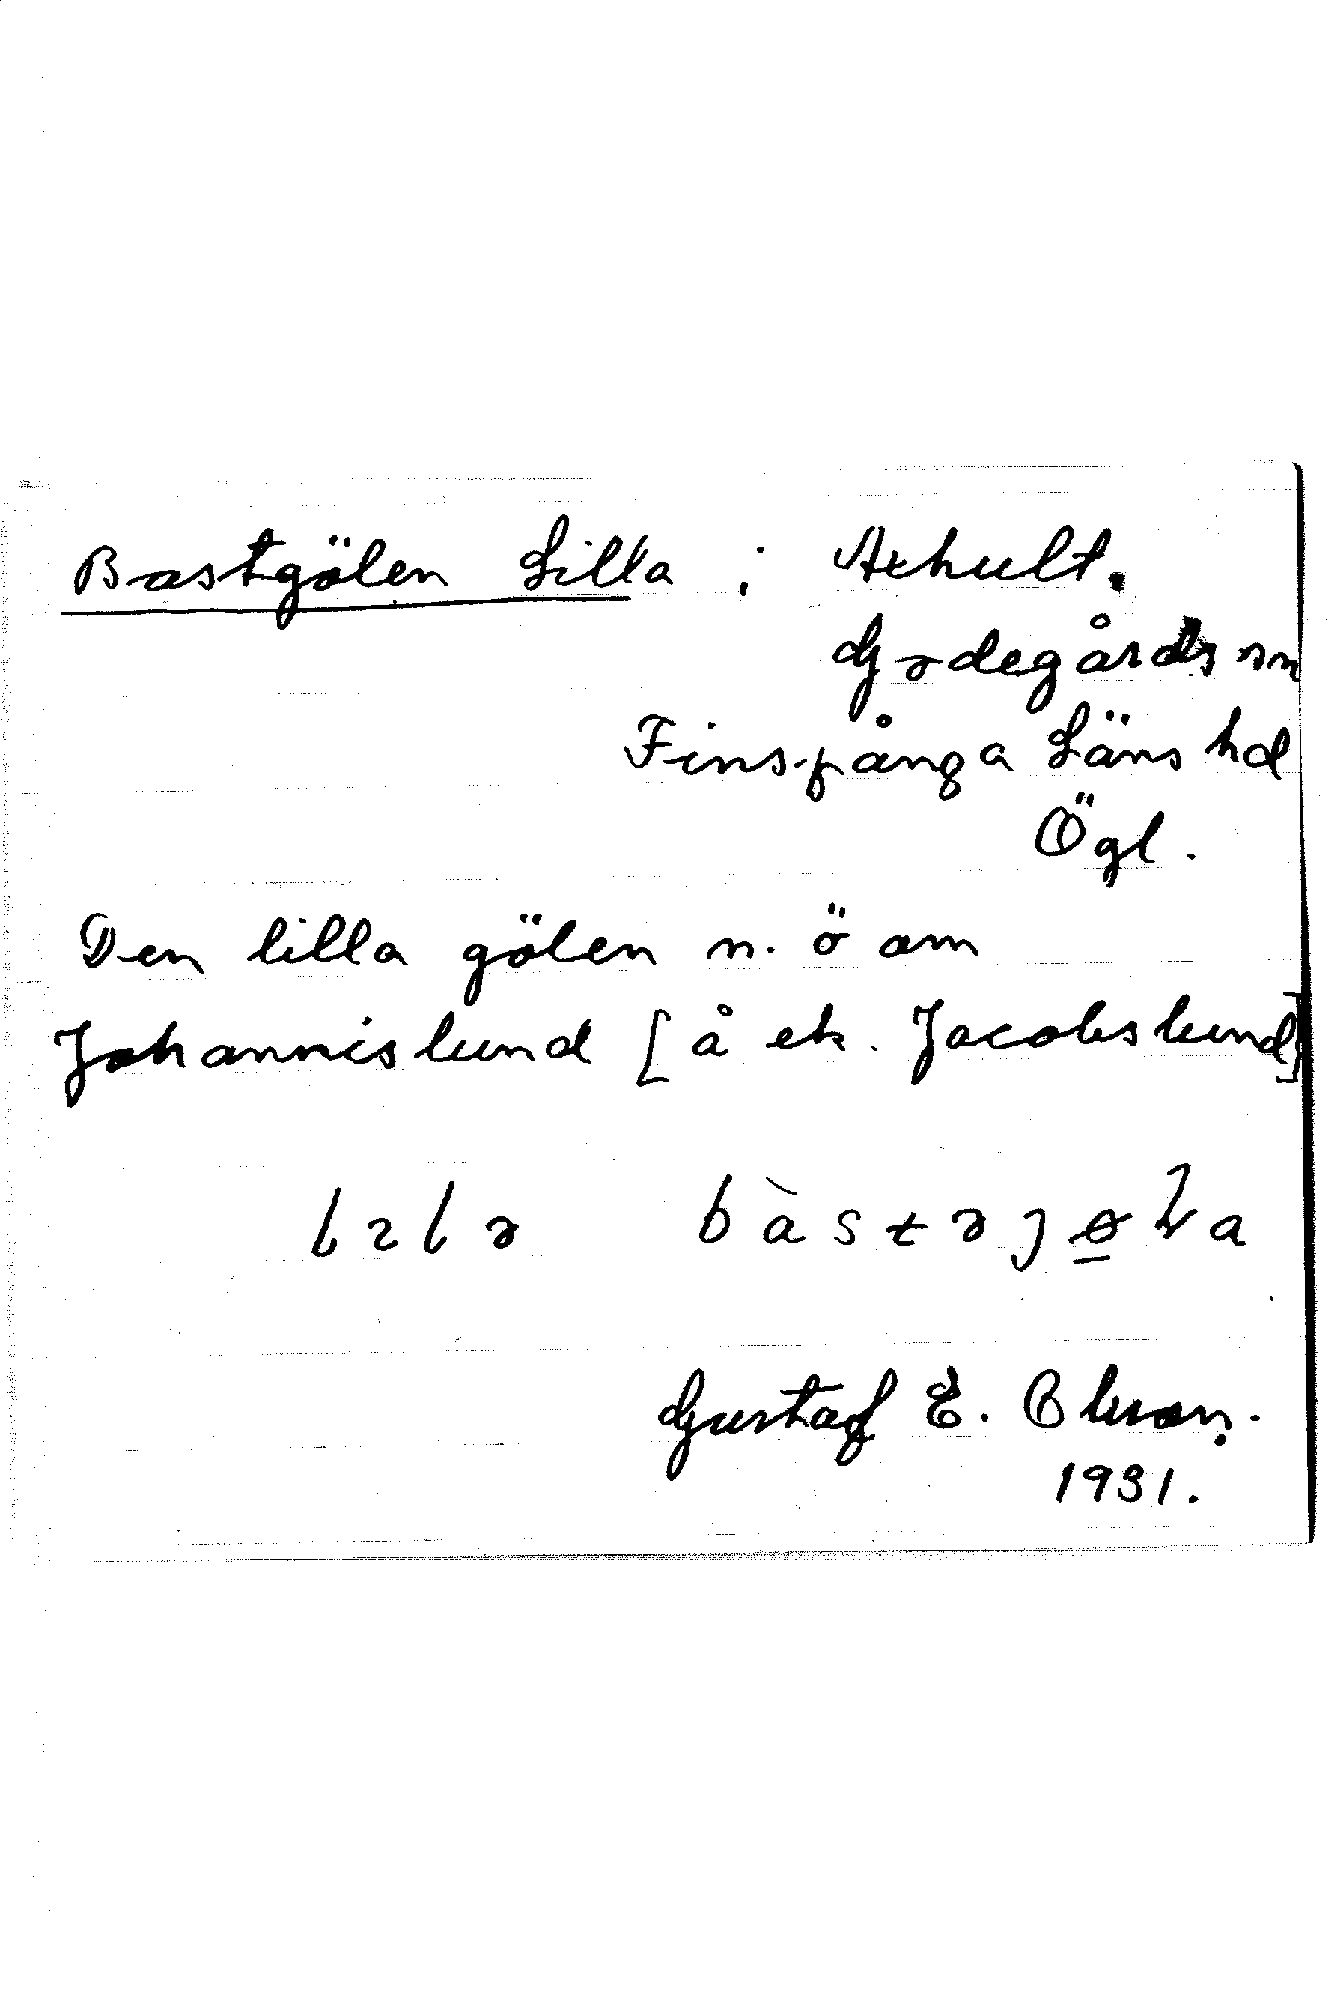 Bastgölen Lilla ; Axhult.
Godegårds sn
Finspånga Läns hd
Ögl.
Den lilla gölen n. ö om
Johannislund [å ek. Jacobslund]
bàstəjøla
Gustaf E.
1931.